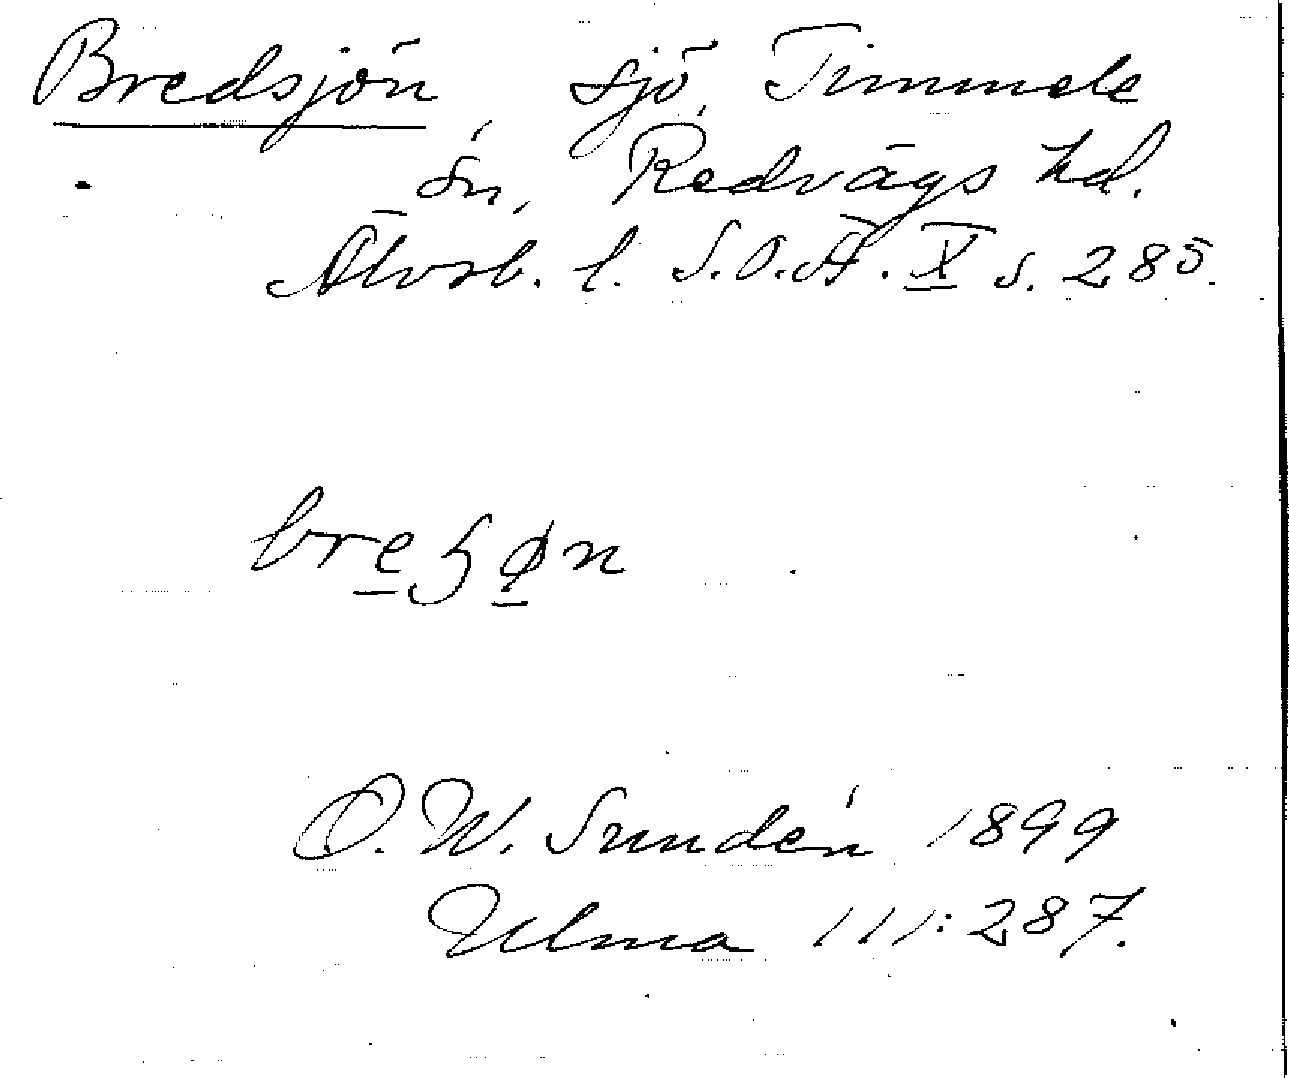 Bredsjön, sjö, Timmele
sn, Redvägs hd.
Älvsb. l. S.O.Ä. X s. 285.
breʒøn
O.W. Sundén 1899
Ulma 111:287.